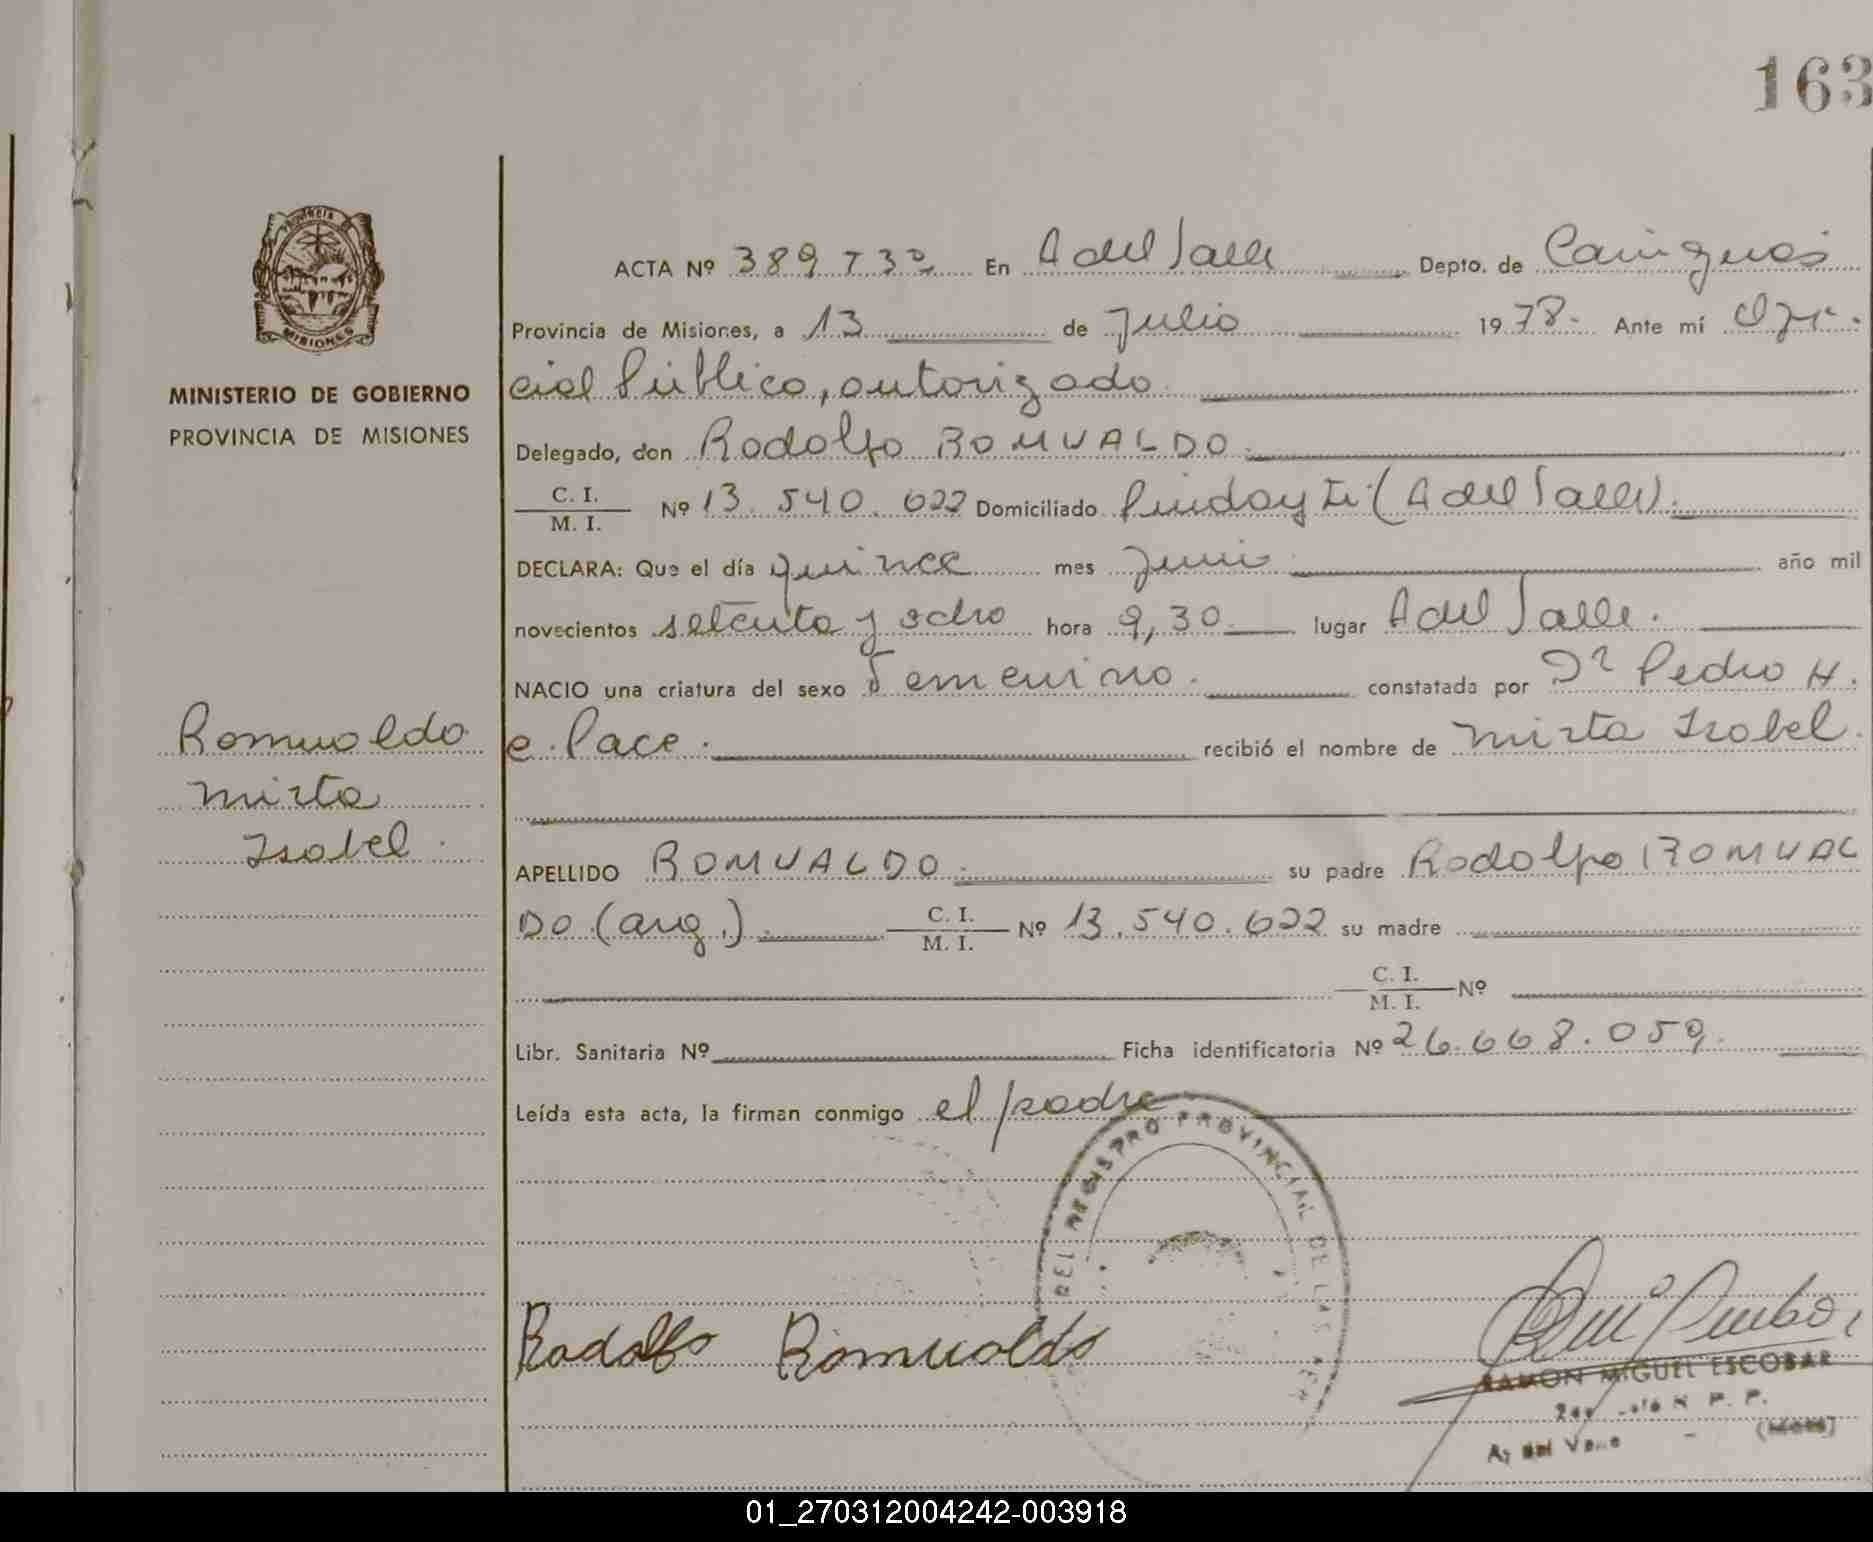 163
PROVINCIA
MISIONES
MINISTERIO DE GOBIERNO
PROVINCIA DE MISIONES
Romualdo
Mirta
Isabel.
ACTA Nº 389 T 3º En A del Valle Depto. de Cainguás
Provincia de Misiones, a 13 de Julio 1978. Ante mí Ofi-
cial Público, autorizado
Delegado, don Rodolfo ROMUALDO.
C. I.
M. I. Nº 13.540.622 Domiciliado Pindaytí (A del Valle).
DECLARA: Que el día quince mes Junio año mil
novecientos setenta y ocho hora 9,30 lugar A del Valle.
NACIO una criatura del sexo Femenino. constatada por Dr Pedro H.
e. Pace. recibió el nombre de Mirta Isabel.
APELLIDO ROMUALDO. su padre Rodolfo ROMUAL
DO (arg.). C. I.
M. I. Nº 13.540.622 su madre
C. I.
M. I. Nº
Libr. Sanitaria Nº Ficha identificatoria Nº 26.668.059.
Leída esta acta, la firman conmigo el padre
DEL REGISTRO PROVINCIAL DE LAS
Rodolfo Romualdo
RAMON MIGUEL ESCOBAR
R. P. P.
A. del Valle (Mnes)
01_270312004242-003918